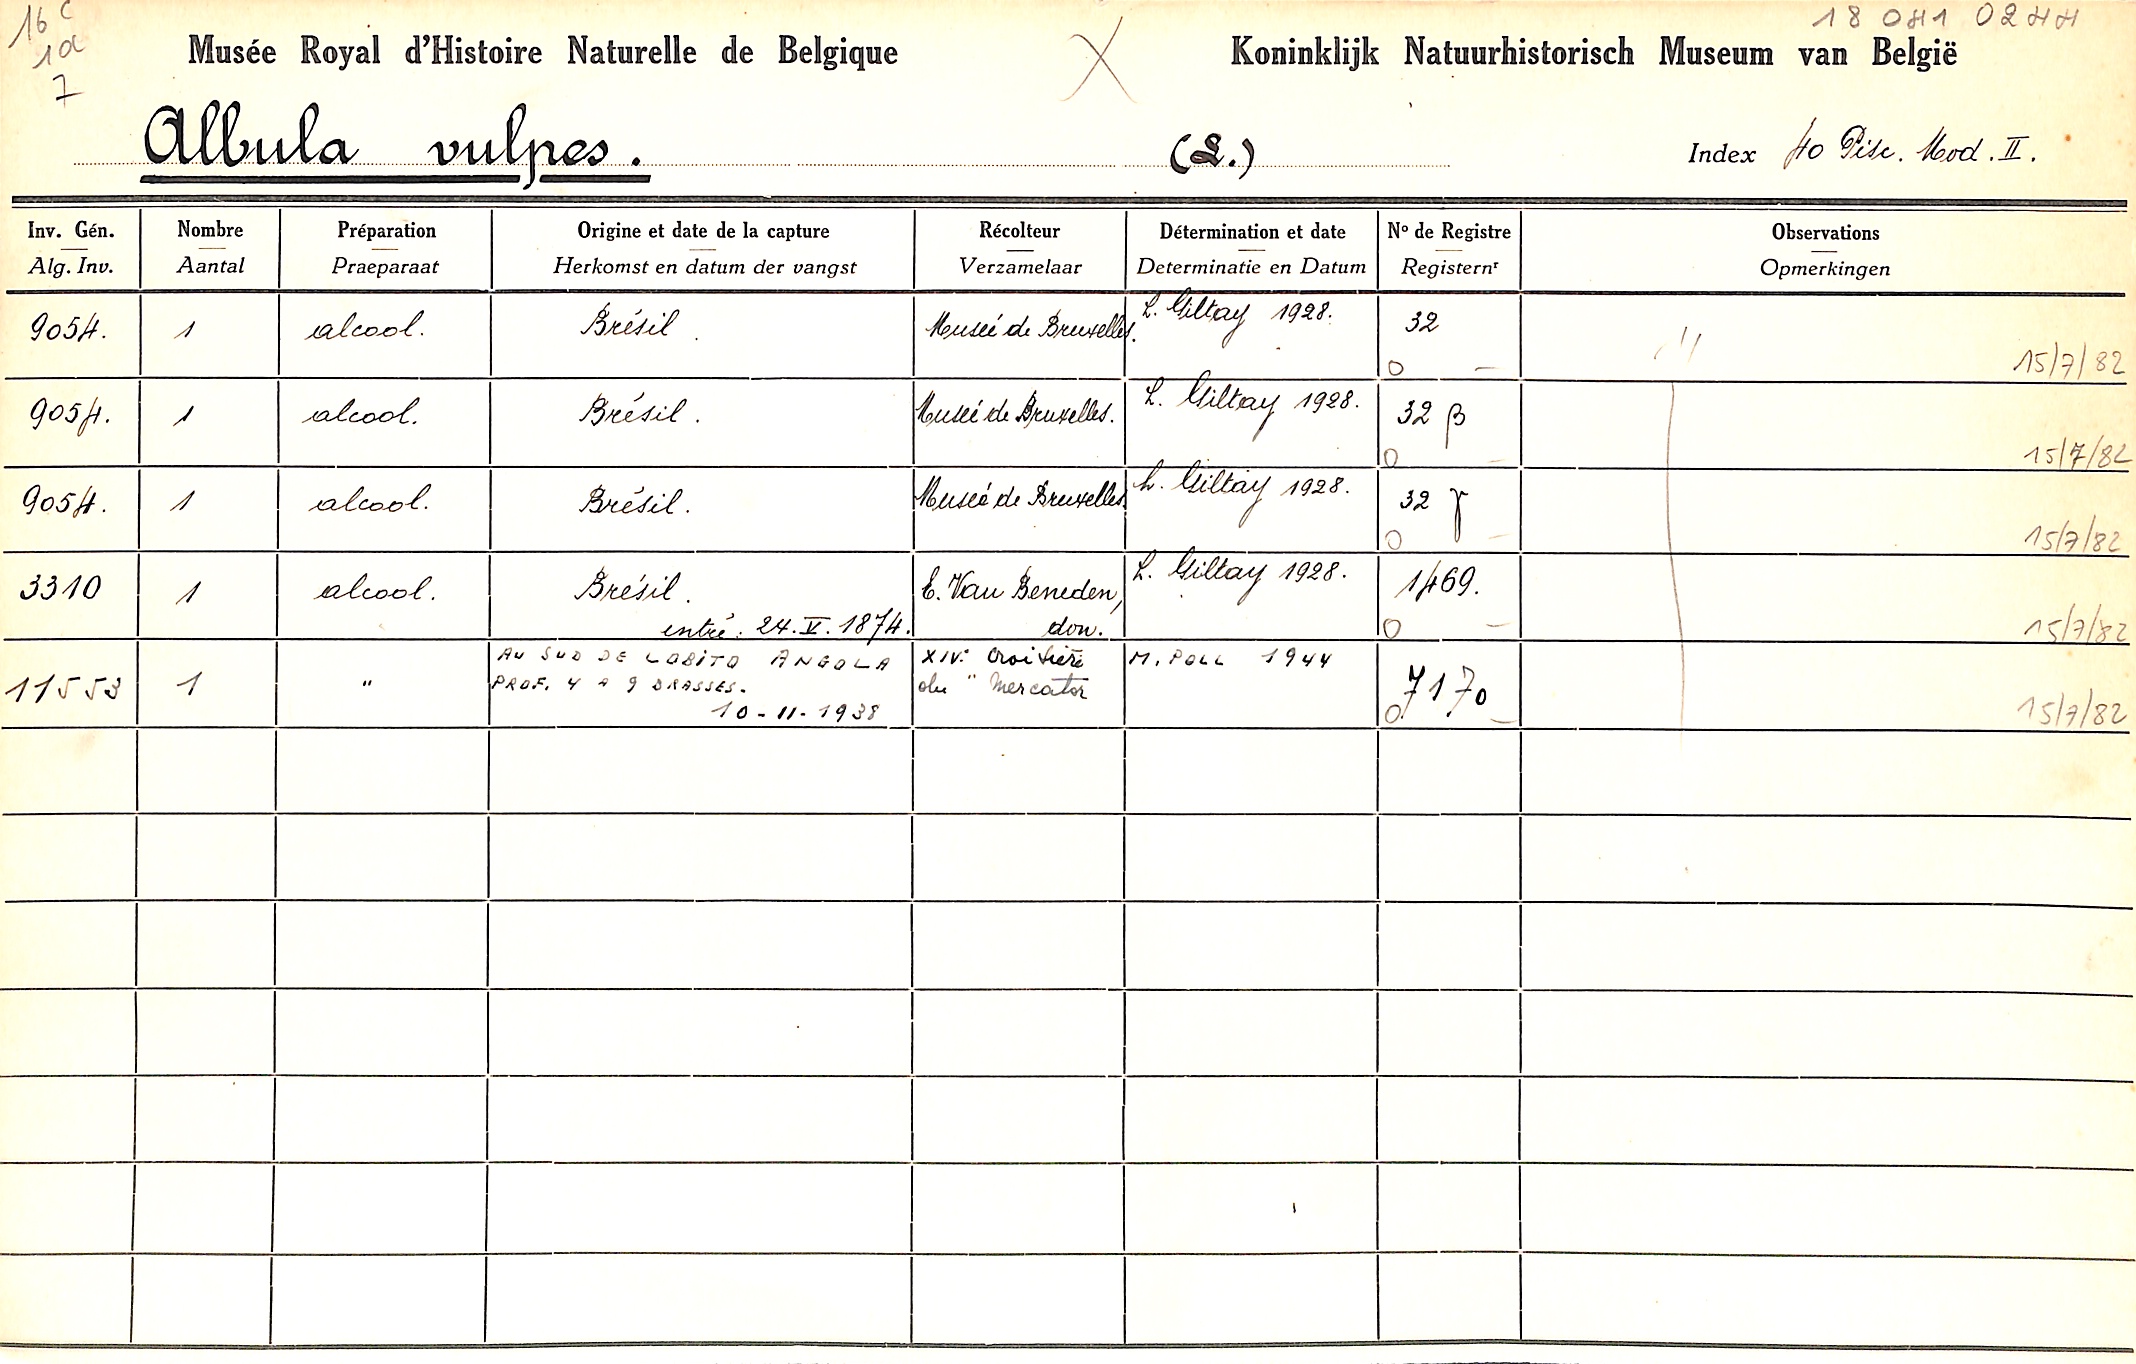 16 c 18 041 0244
1a
7
Musée Royal d'Histoire Naturelle de Belgique X Koninklijk Natuurhistorisch Museum van België
Albula vulpes. (L.) Index 40 Pisc. Mod. II.
Inv. Gén. Nombre Préparation Origine et date de la capture Récolteur Détermination et date Nº de Registre Observations
Alg. Inv. Aantal Praeparaat Herkomst en datum der vangst Verzamelaar Determinatie en Datum Registernr Opmerkingen
9054. 1 alcool. Brésil. Musée de Bruxelles. L. Giltay 1928. 32
0 — 15/7/82
9054. 1 alcool. Brésil. Musée de Bruxelles. L. Giltay 1928. 32 β
0 — 15/7/82
9054. 1 alcool. Brésil. Musée de Bruxelles. L. Giltay 1928. 32 γ
0 — 15/7/82
3310 1 alcool. Brésil. E. Van Beneden, L. Giltay 1928. 1469.
entré. 24.V.1874. don. 0 — 15/7/82
AU SUD DE LOBITO ANGOLA XIVe Croisière M. POLL 1944
11553 1 " PROF. 4 A 9 BRASSES. du " Mercator 7170
10-11-1938 0 — 15/7/82